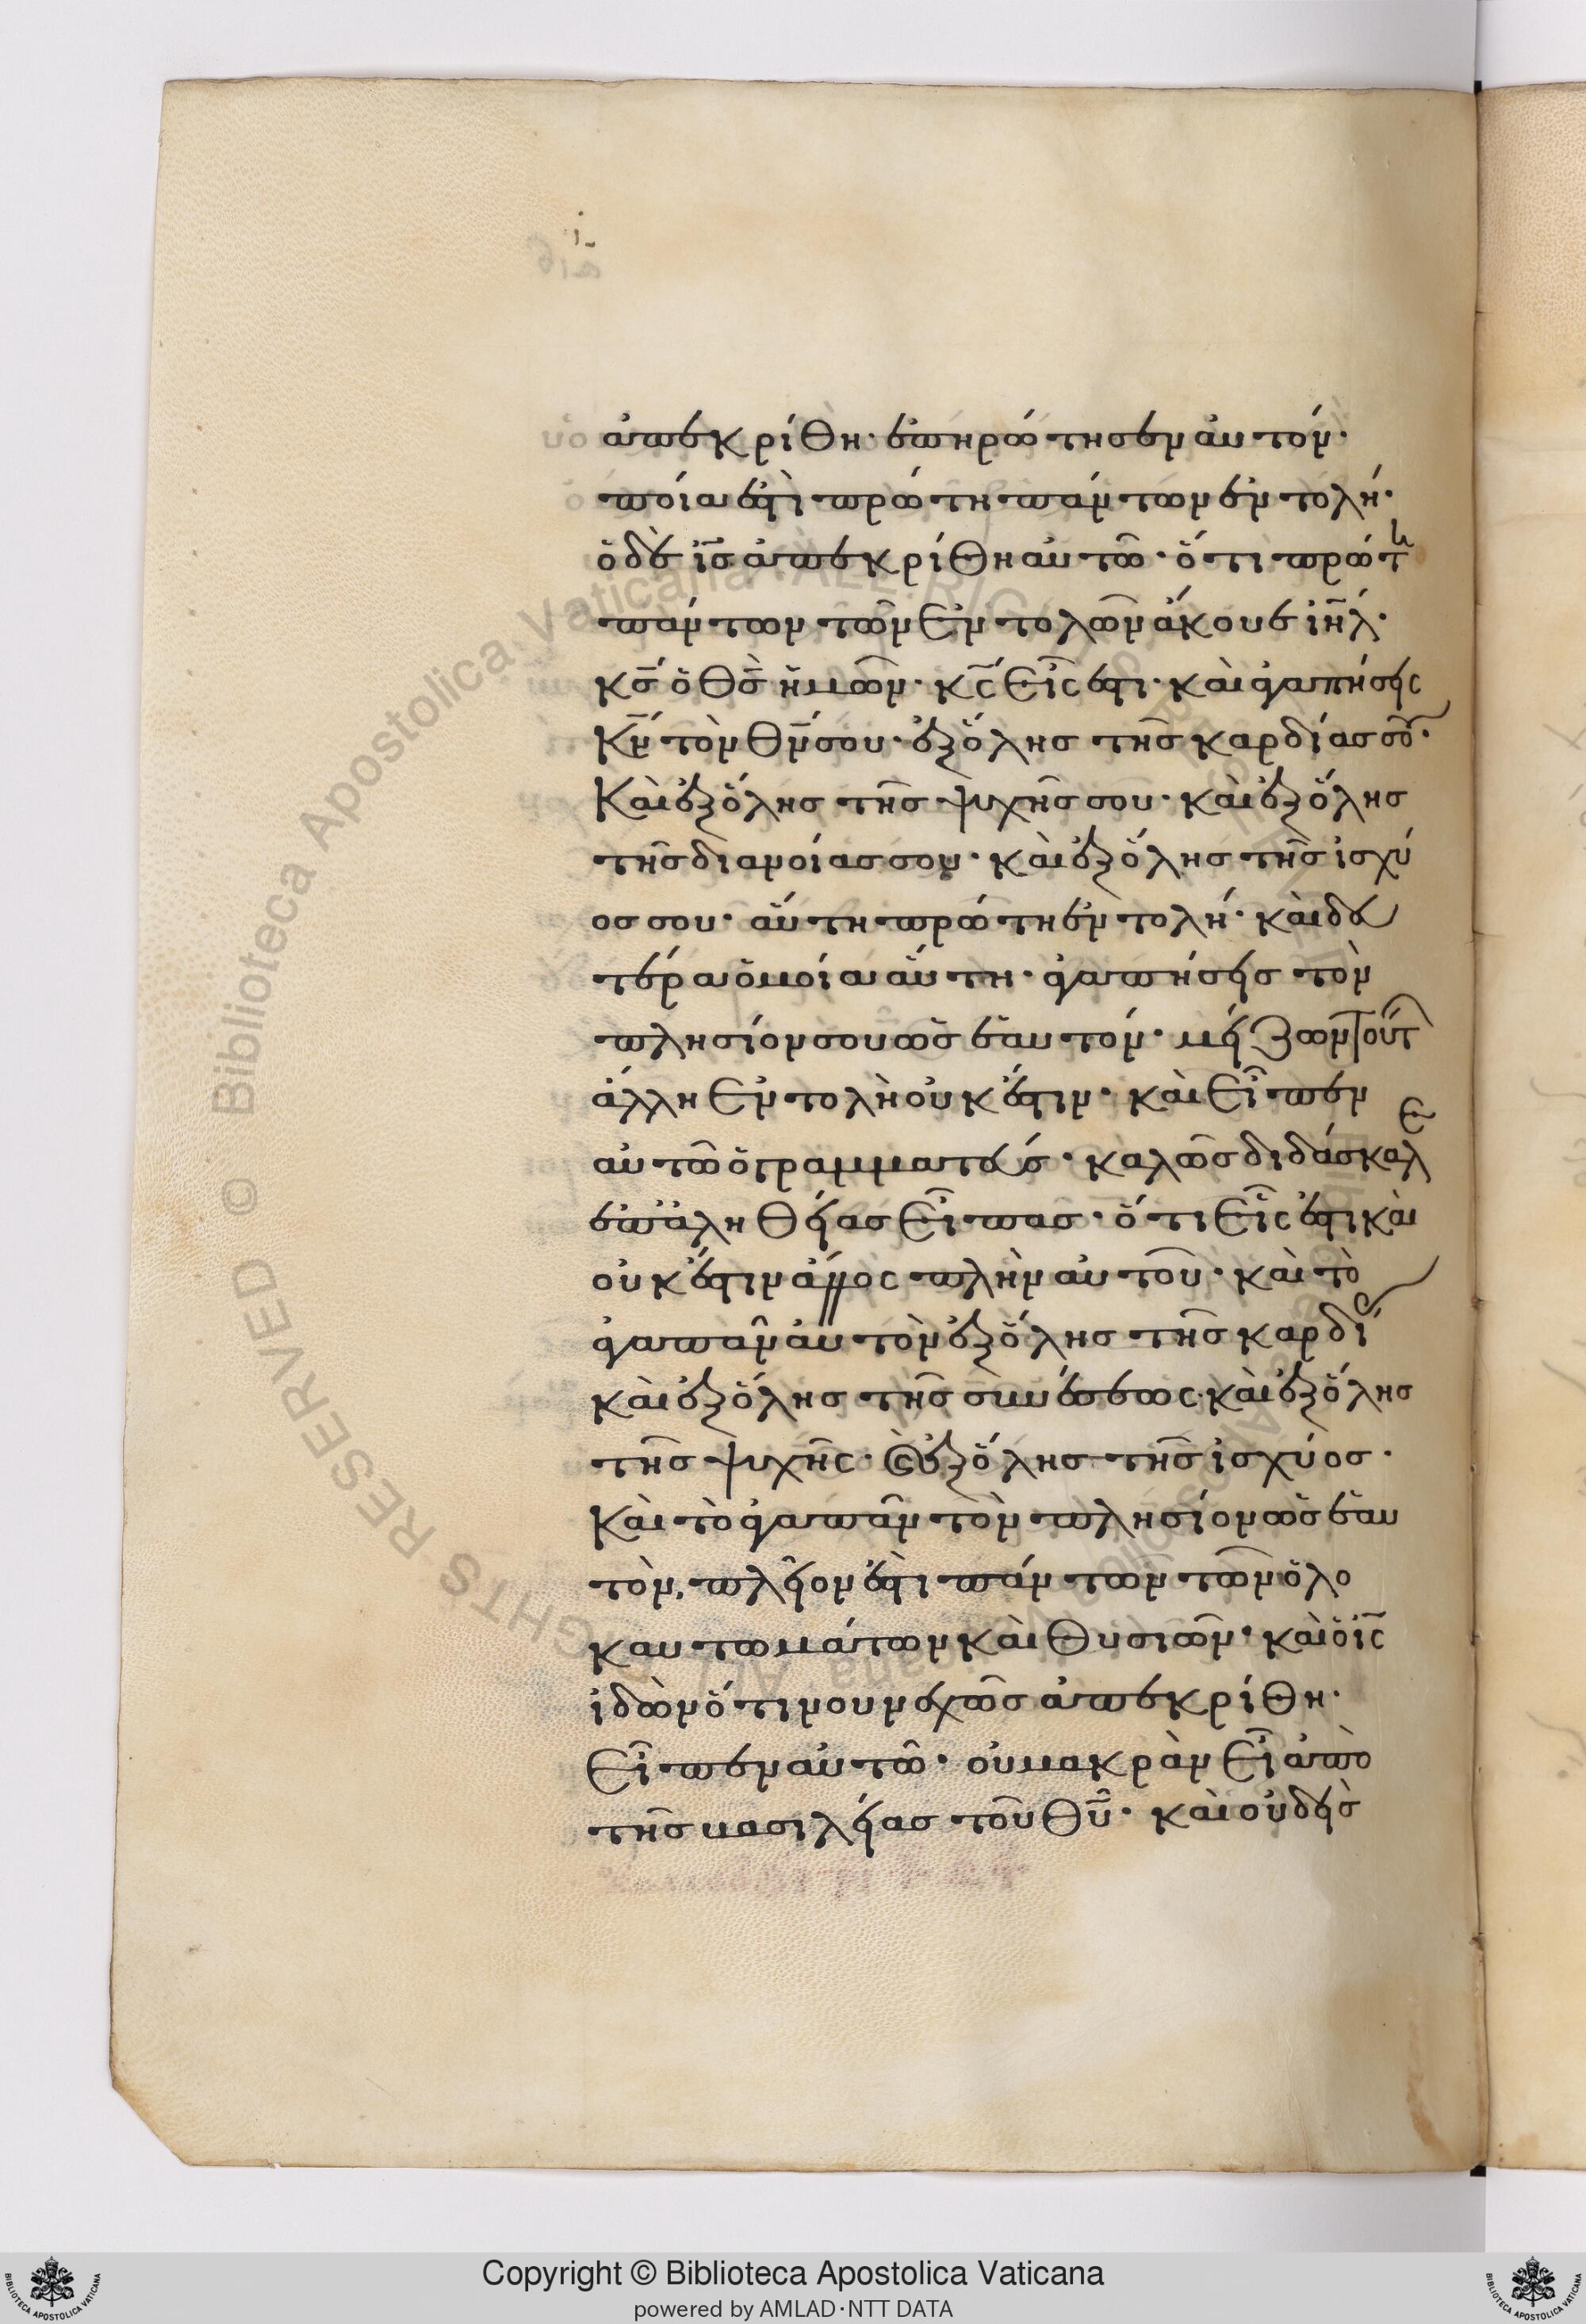 ἀπεκρίθη· ἐπηρώτησεν αὐτόν·
ποία ἐστὶ πρώτη πάντων ἐντολή·
ὁ δὲ ις̅ ἀπεκρίθη αὐτῶ· ὅτι πρώτη
πάντων τῶν ἐντολῶν ἄκουε ιηλ̅·
κς̅ ὁ θς̅ ἡμῶν· κς̅ εἷς ἐστι· καὶ ἀγαπήσεις
κν̅ τὸν θν̅ σου· ἐξ ὅλης τῆς καρδίας σου·
καὶ ἐξ ὅλης τῆς ψυχῆς σου· καὶ ἐξ ὅλης
τῆς διανοίας σου· καὶ ἐξ ὅλης τῆς ἰσχύ
ος σου· αὕτη πρώτη ἐντολή· καὶ δευ
τέρα ὁμοία αὕτη· ἀγαπήσεις τὸν
πλησίον σου ὡς ἑαυτόν· μείζων τούτ
ἄλλη ἐντολὴ οὐκ ἔστιν· καὶ εἶπεν
αὐτῶ ὁ γραμματεύς· καλῶς διδάσκαλε
ἐπ ἀληθείας εἶπας· ὅτι εἷς ἐστι καὶ
οὐκ ἔστιν ἄλλος πλὴν αὐτοῦ· καὶ τὸ
ἀγαπᾶν αὐτὸν ἐξ ὅλης τῆς καρδί
καὶ ἐξ ὅλης τῆς συνέσεως· καὶ ἐξ ὅλης
τῆς ψυχῆς· καὶ ἐξ ὅλης τῆς ἰσχύος·
καὶ τὸ ἀγαπᾶν τὸν πλησίον ὡς ἑαυ
τὸν, πλεῖον ἐστὶ πάντων τῶν ὁλο
καυτωμάτων καὶ θυσιῶν· καὶ ὁ ις̅
ἰδὼν ὅτι νουνεχῶς ἀπεκρίθη·
εἶπεν αὐτῶ· οὐ μακρὰν εἶ ἀπὸ
τῆς βασιλείας τοῦ θυ̅· καὶ οὐδεὶς
Copyright © Biblioteca Apostolica Vaticana
powered by AMLAD·NTT DATA